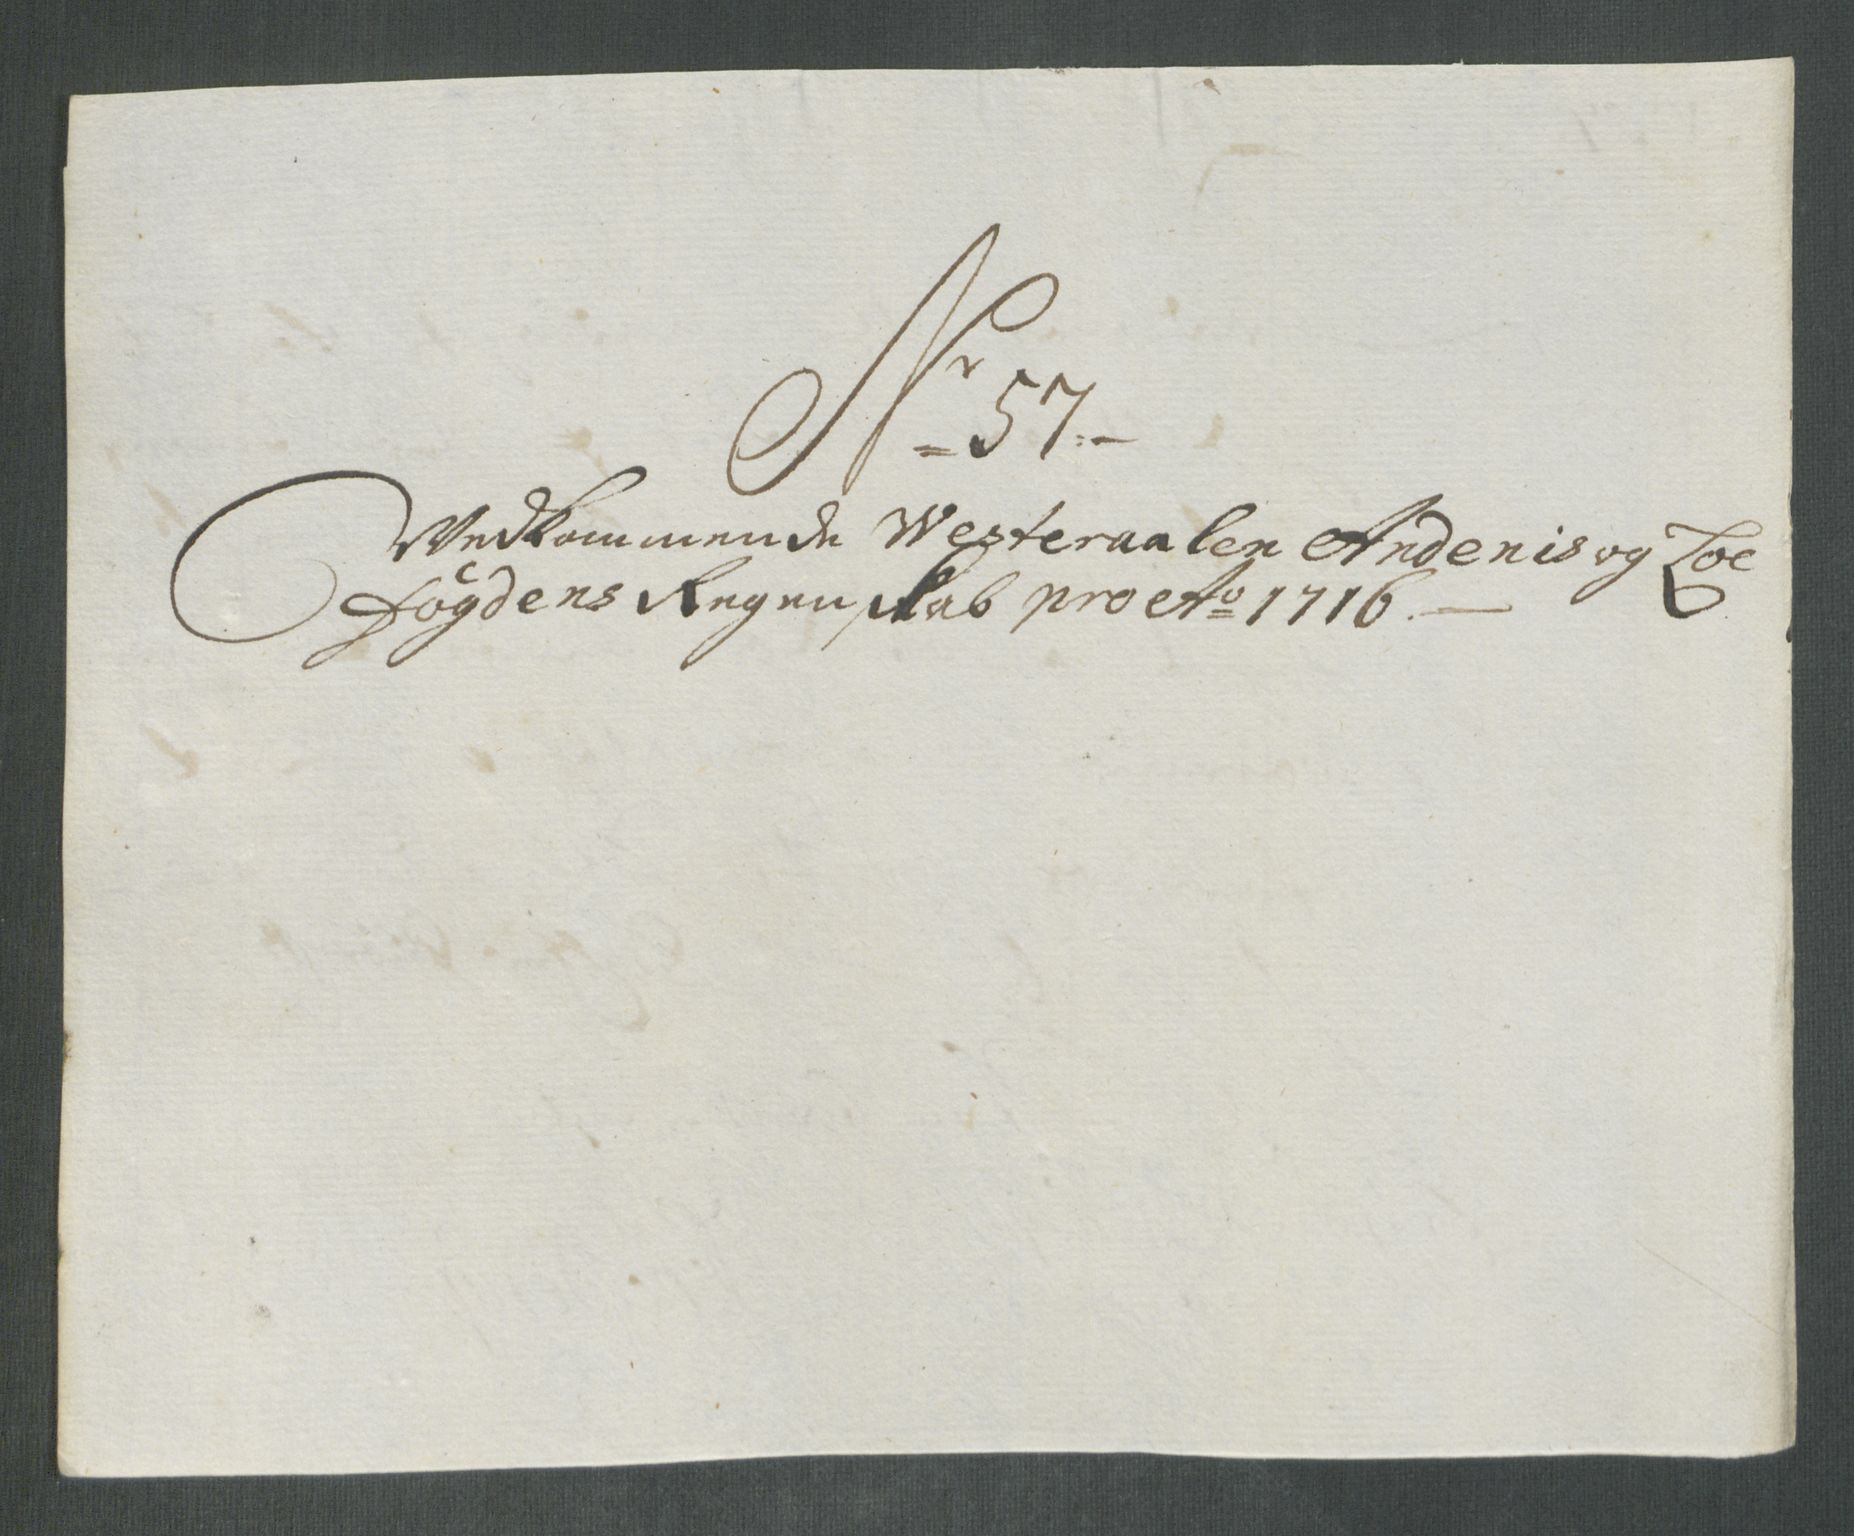 Nr 57.
Vedkommende Westeraalen Andenis og Loe
fogdens Regenskab pro Ao 1716.